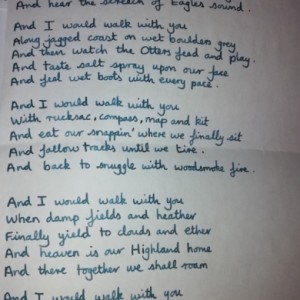 And hear the screech of Eagles sound.
And I would walk with you
Along jagged coast on wet boulders grey
And then watch the Otters feed and play.
And taste salt spray upon our face
And feel wet boots with every pace.
And I would walk with you
With rucsac, compass, map and kit
And eat our snappin' where we finally sit
And follow tracks until we tire.
And back to snuggle with woodsmoke fire.
And I would walk with you
When damp fields and heather
Finally yield to clouds and ether
And heaven is our Highland home
And there together we shall roam
And I would walk with you